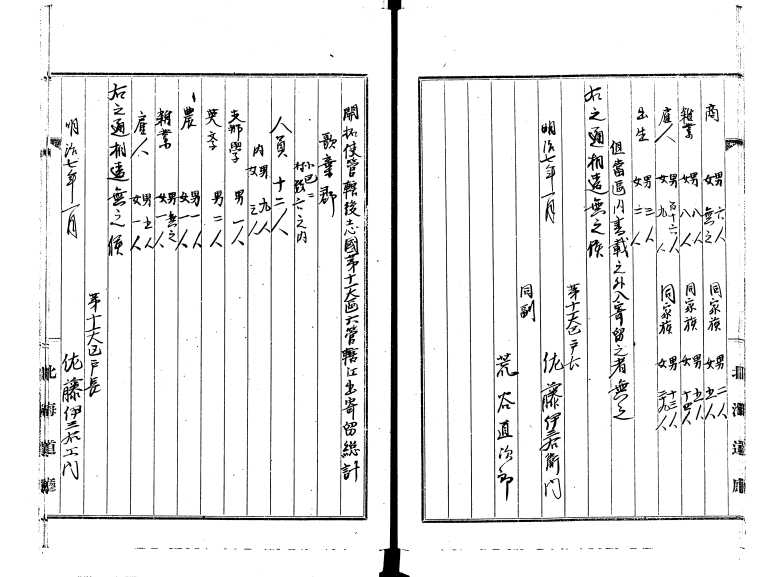 商 男 六人 女 無之 同家族 男 二人 女 五人
雑業 男 八人 女 八人 同家族 男 五人 女 十四人
雇人 男 百十六人 女 九人 同家族 男 十三人 女 三九人
出生 男 三人 女 三人
但當區内書載之外入寄留之者無之
右之通相違無之候
明治七年一月
第十一大区戸長
佐藤伊三右衛門
同副
荒谷直次郎
開拓使管轄後志國第十一大區六管轄江出寄留総計
歌棄郡
小区二
村数六之内
人員 十二人
内 男 九人 女 三人
支那學 男 一人
英学 男 二人
農 男 一人 女 一人
雑業 男 無之 女 一人
雇人 男 五人 女 一人
右之通相違無之候
明治七年一月
第十一大区戸長
佐藤伊三右エ門
北海道廳